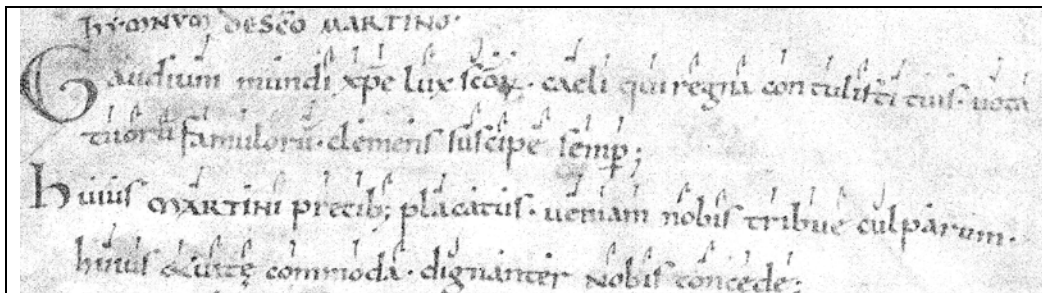 hYMNVM DE SCO MARTINO·
Gaudium mundi xpe lux scōꝝ · caeli qui regna contulisti tuis · uota
tuorū famulorū · clemens suscipe semꝑ;
huius MARTINI precib; placatus · ueniam nobis tribue culparum ·
huius &uitę commoda · dignanter nobis concede;